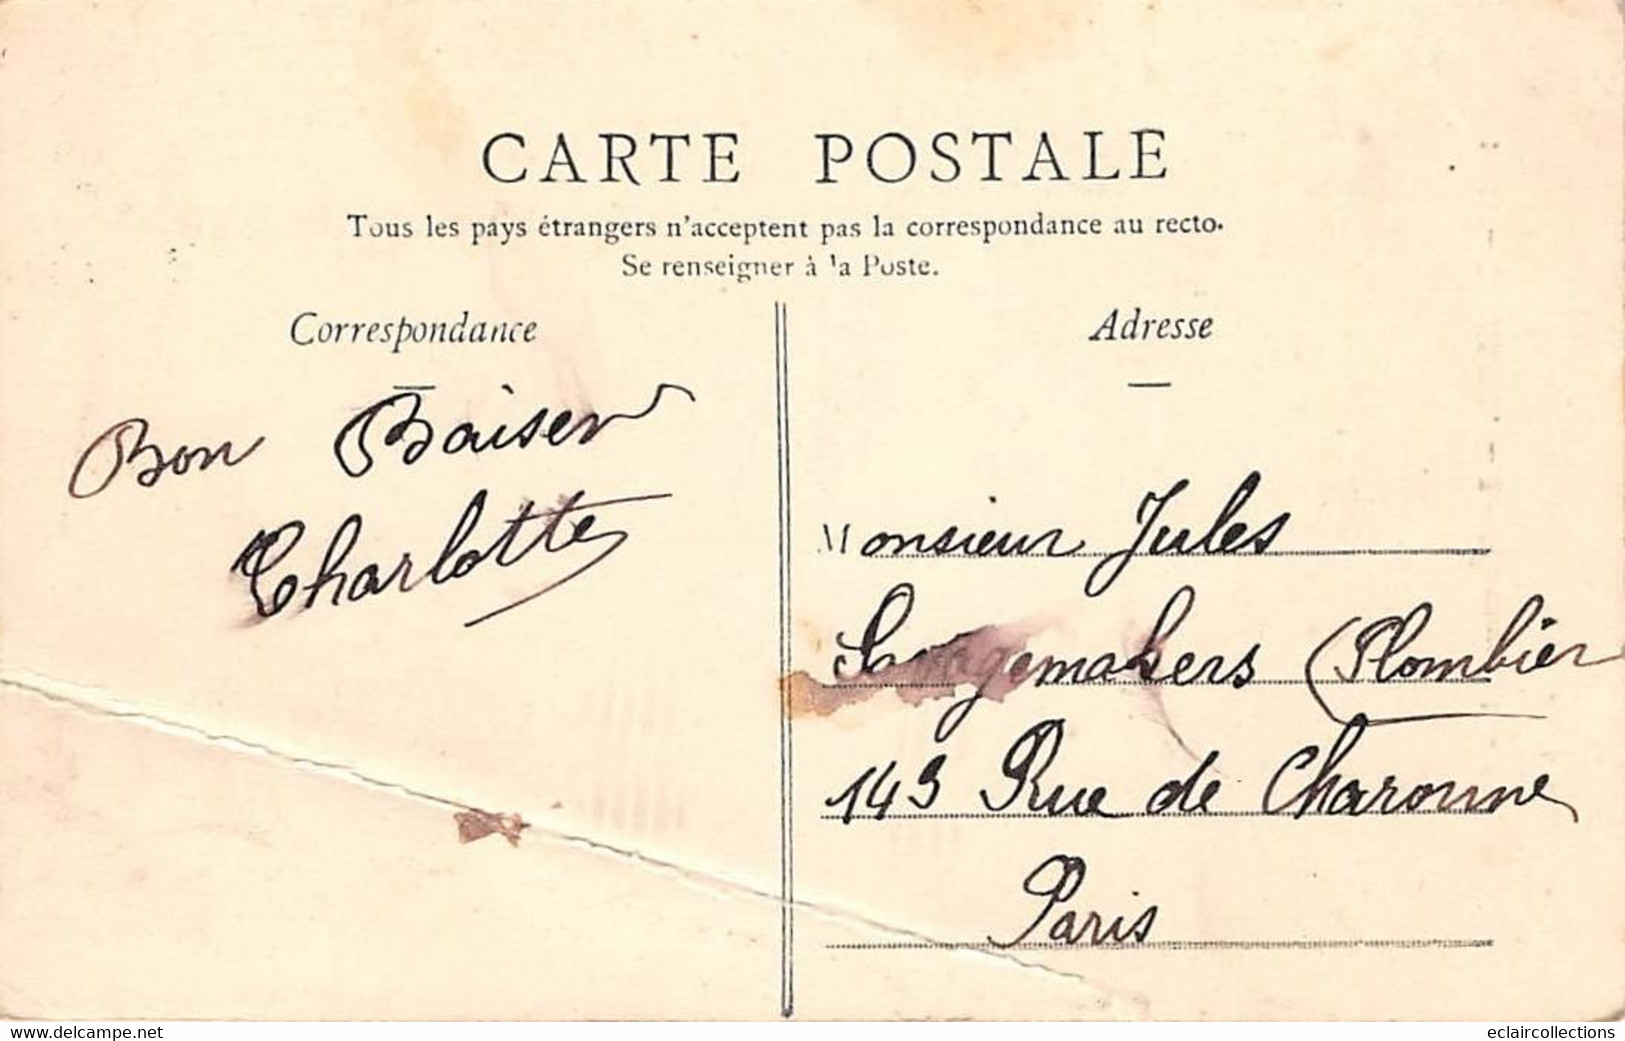 CARTE POSTALE
Tous les pays étrangers n'acceptent pas la correspondance au recto.
Se renseigner à la Poste.
Correspondance
Bon Baiser
Charlotte
Adresse
Monsieur Jules
(Plombier
Rue de Charonne
Paris
www.delcampe.net
eclaircollections